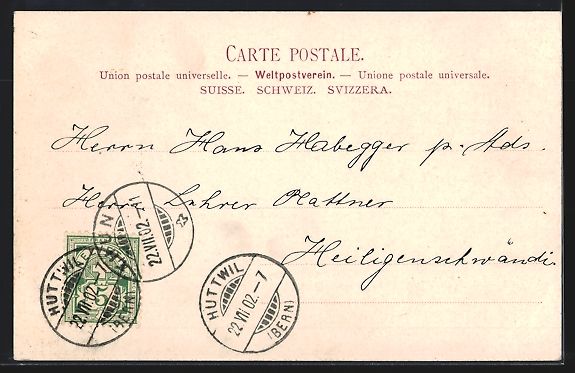 CARTE POSTALE.
Union postale universelle. — Weltpostverein. — Unione postale universale.
SUISSE. SCHWEIZ. SVIZZERA.
Herrn Hans Habegger p. Ads.
Herrn Lehrer Plattner
Heiligenschwändi.
THUN
22.VII.02.–11
HUTTWIL
22.VII.02.–7
(BERN)
HUTTWIL
22.VII.02.–7
(BERN)